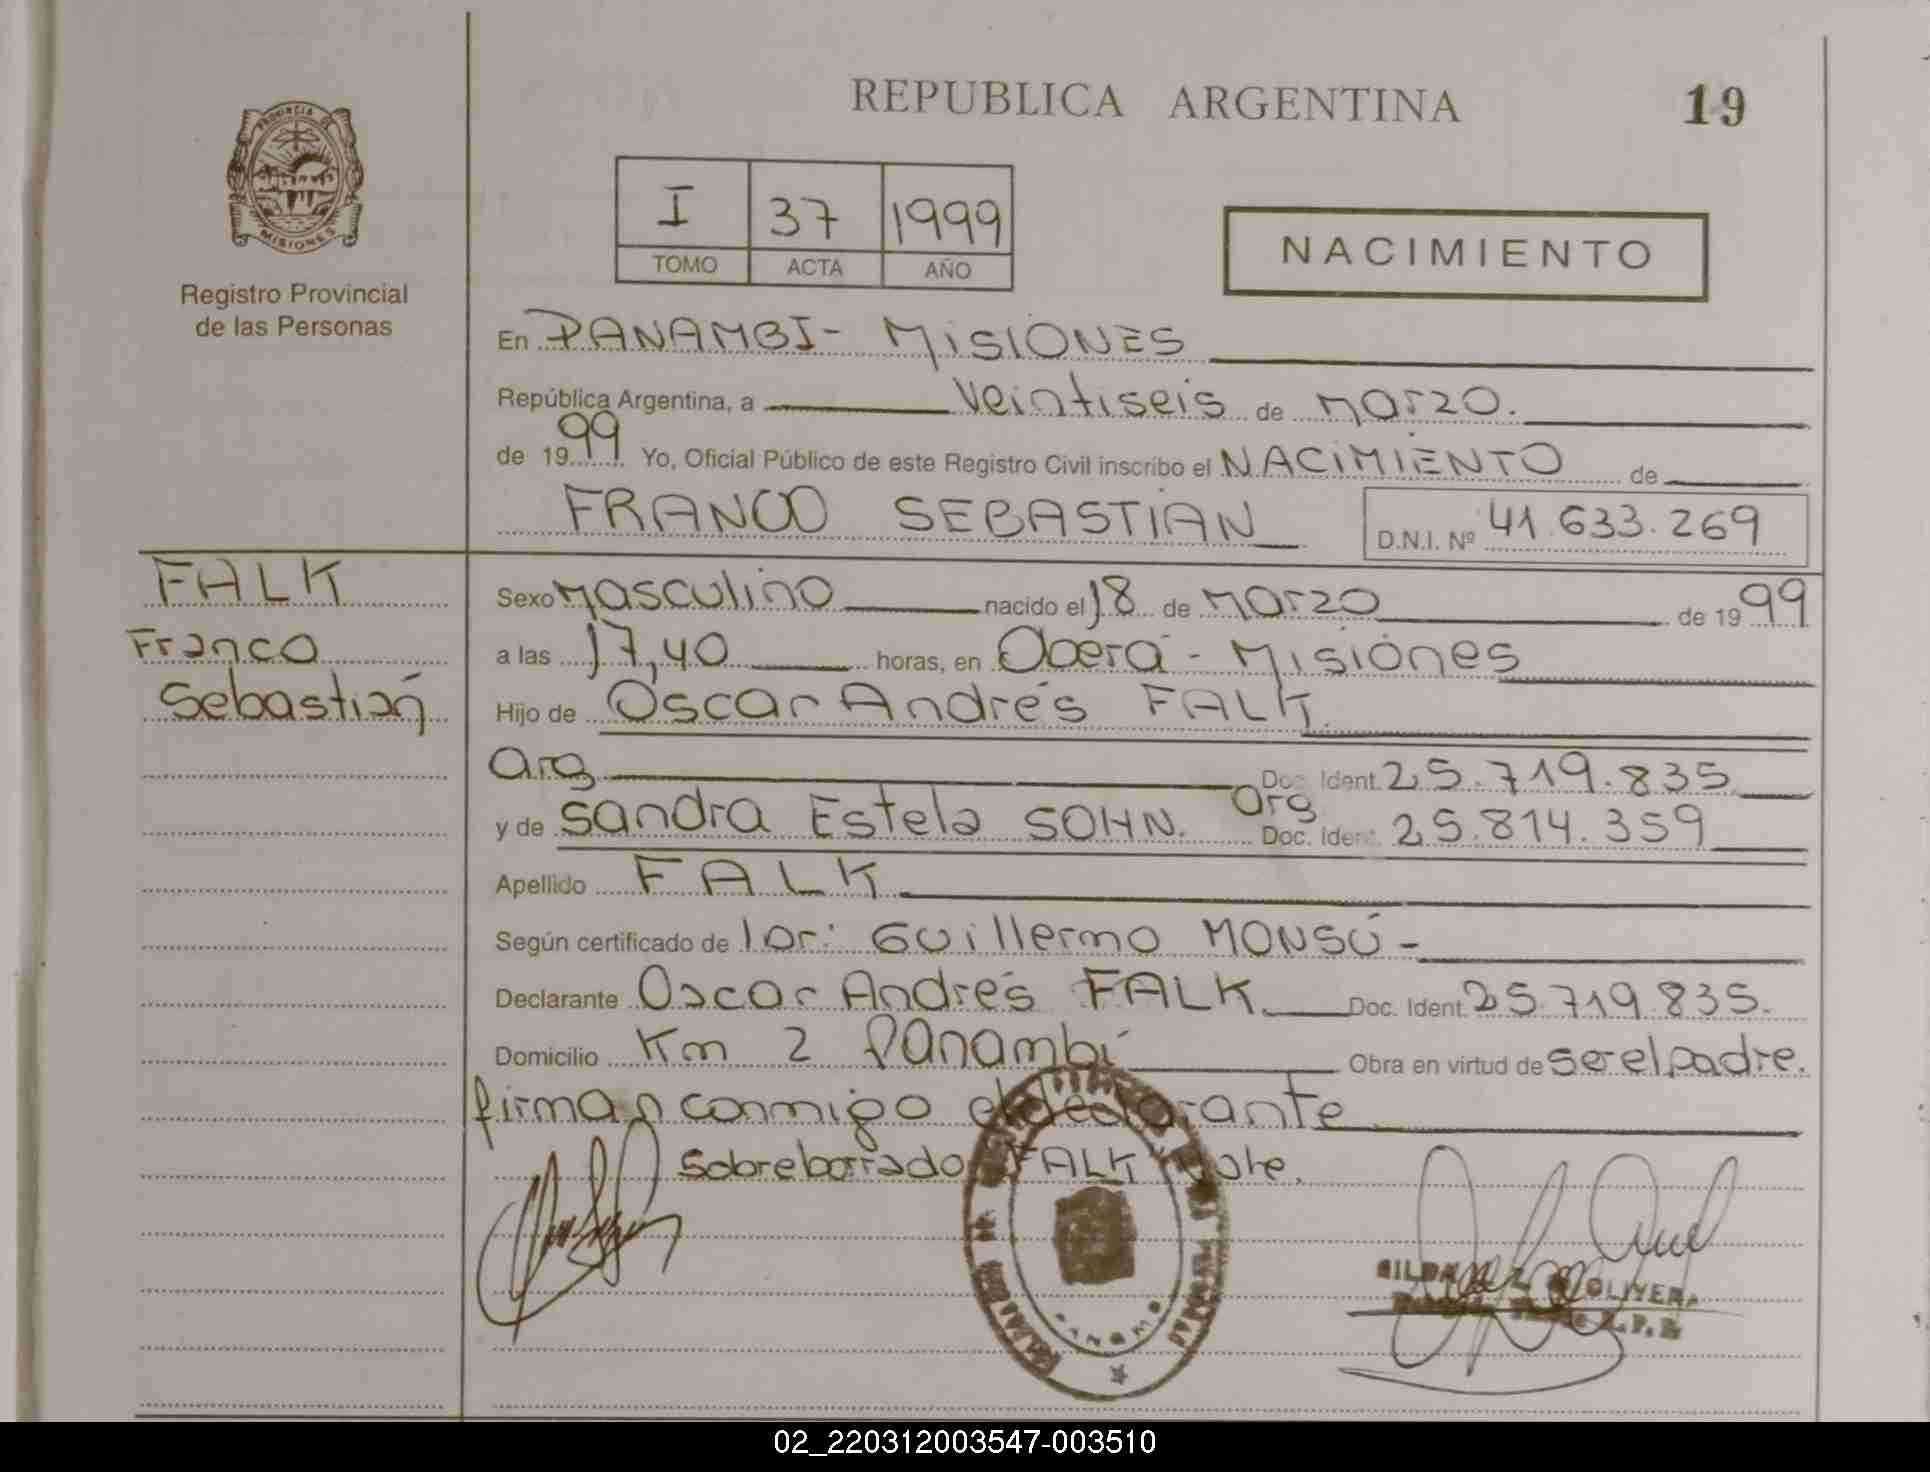 REPUBLICA ARGENTINA
19
PROVINCIA DE
MISIONES
Registro Provincial
de las Personas
I 37 1999
TOMO ACTA AÑO
NACIMIENTO
En PANAMBI - MISIONES
República Argentina, a veintiseis de marzo.
de 1999 Yo, Oficial Público de este Registro Civil inscribo el NACIMIENTO de
FRANCO SEBASTIAN D.N.I. Nº 41.633.269
FALK
Franco
Sebastián
Sexo masculino nacido el 18 de marzo de 1999
a las 17,40 horas, en Oberá - Misiones
Hijo de Oscar Andrés FALK
arg Doc. Ident. 25.719.835
y de Sandra Estela SOHN. arg Doc. Ident. 25.814.359
Apellido FALK
Según certificado de Guillermo MONSÚ -
Declarante Oscar Andrés FALK Doc. Ident. 25.719.835.
Domicilio Km 2 Panambí Obra en virtud de ser el padre.
firman conmigo el declarante
Sobreborrado "FALK" Vale.
OLIVERA
02_220312003547-003510